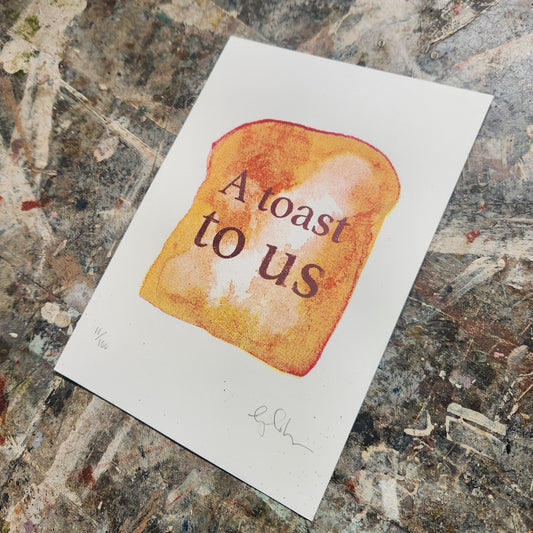 A toast
to us
11/100